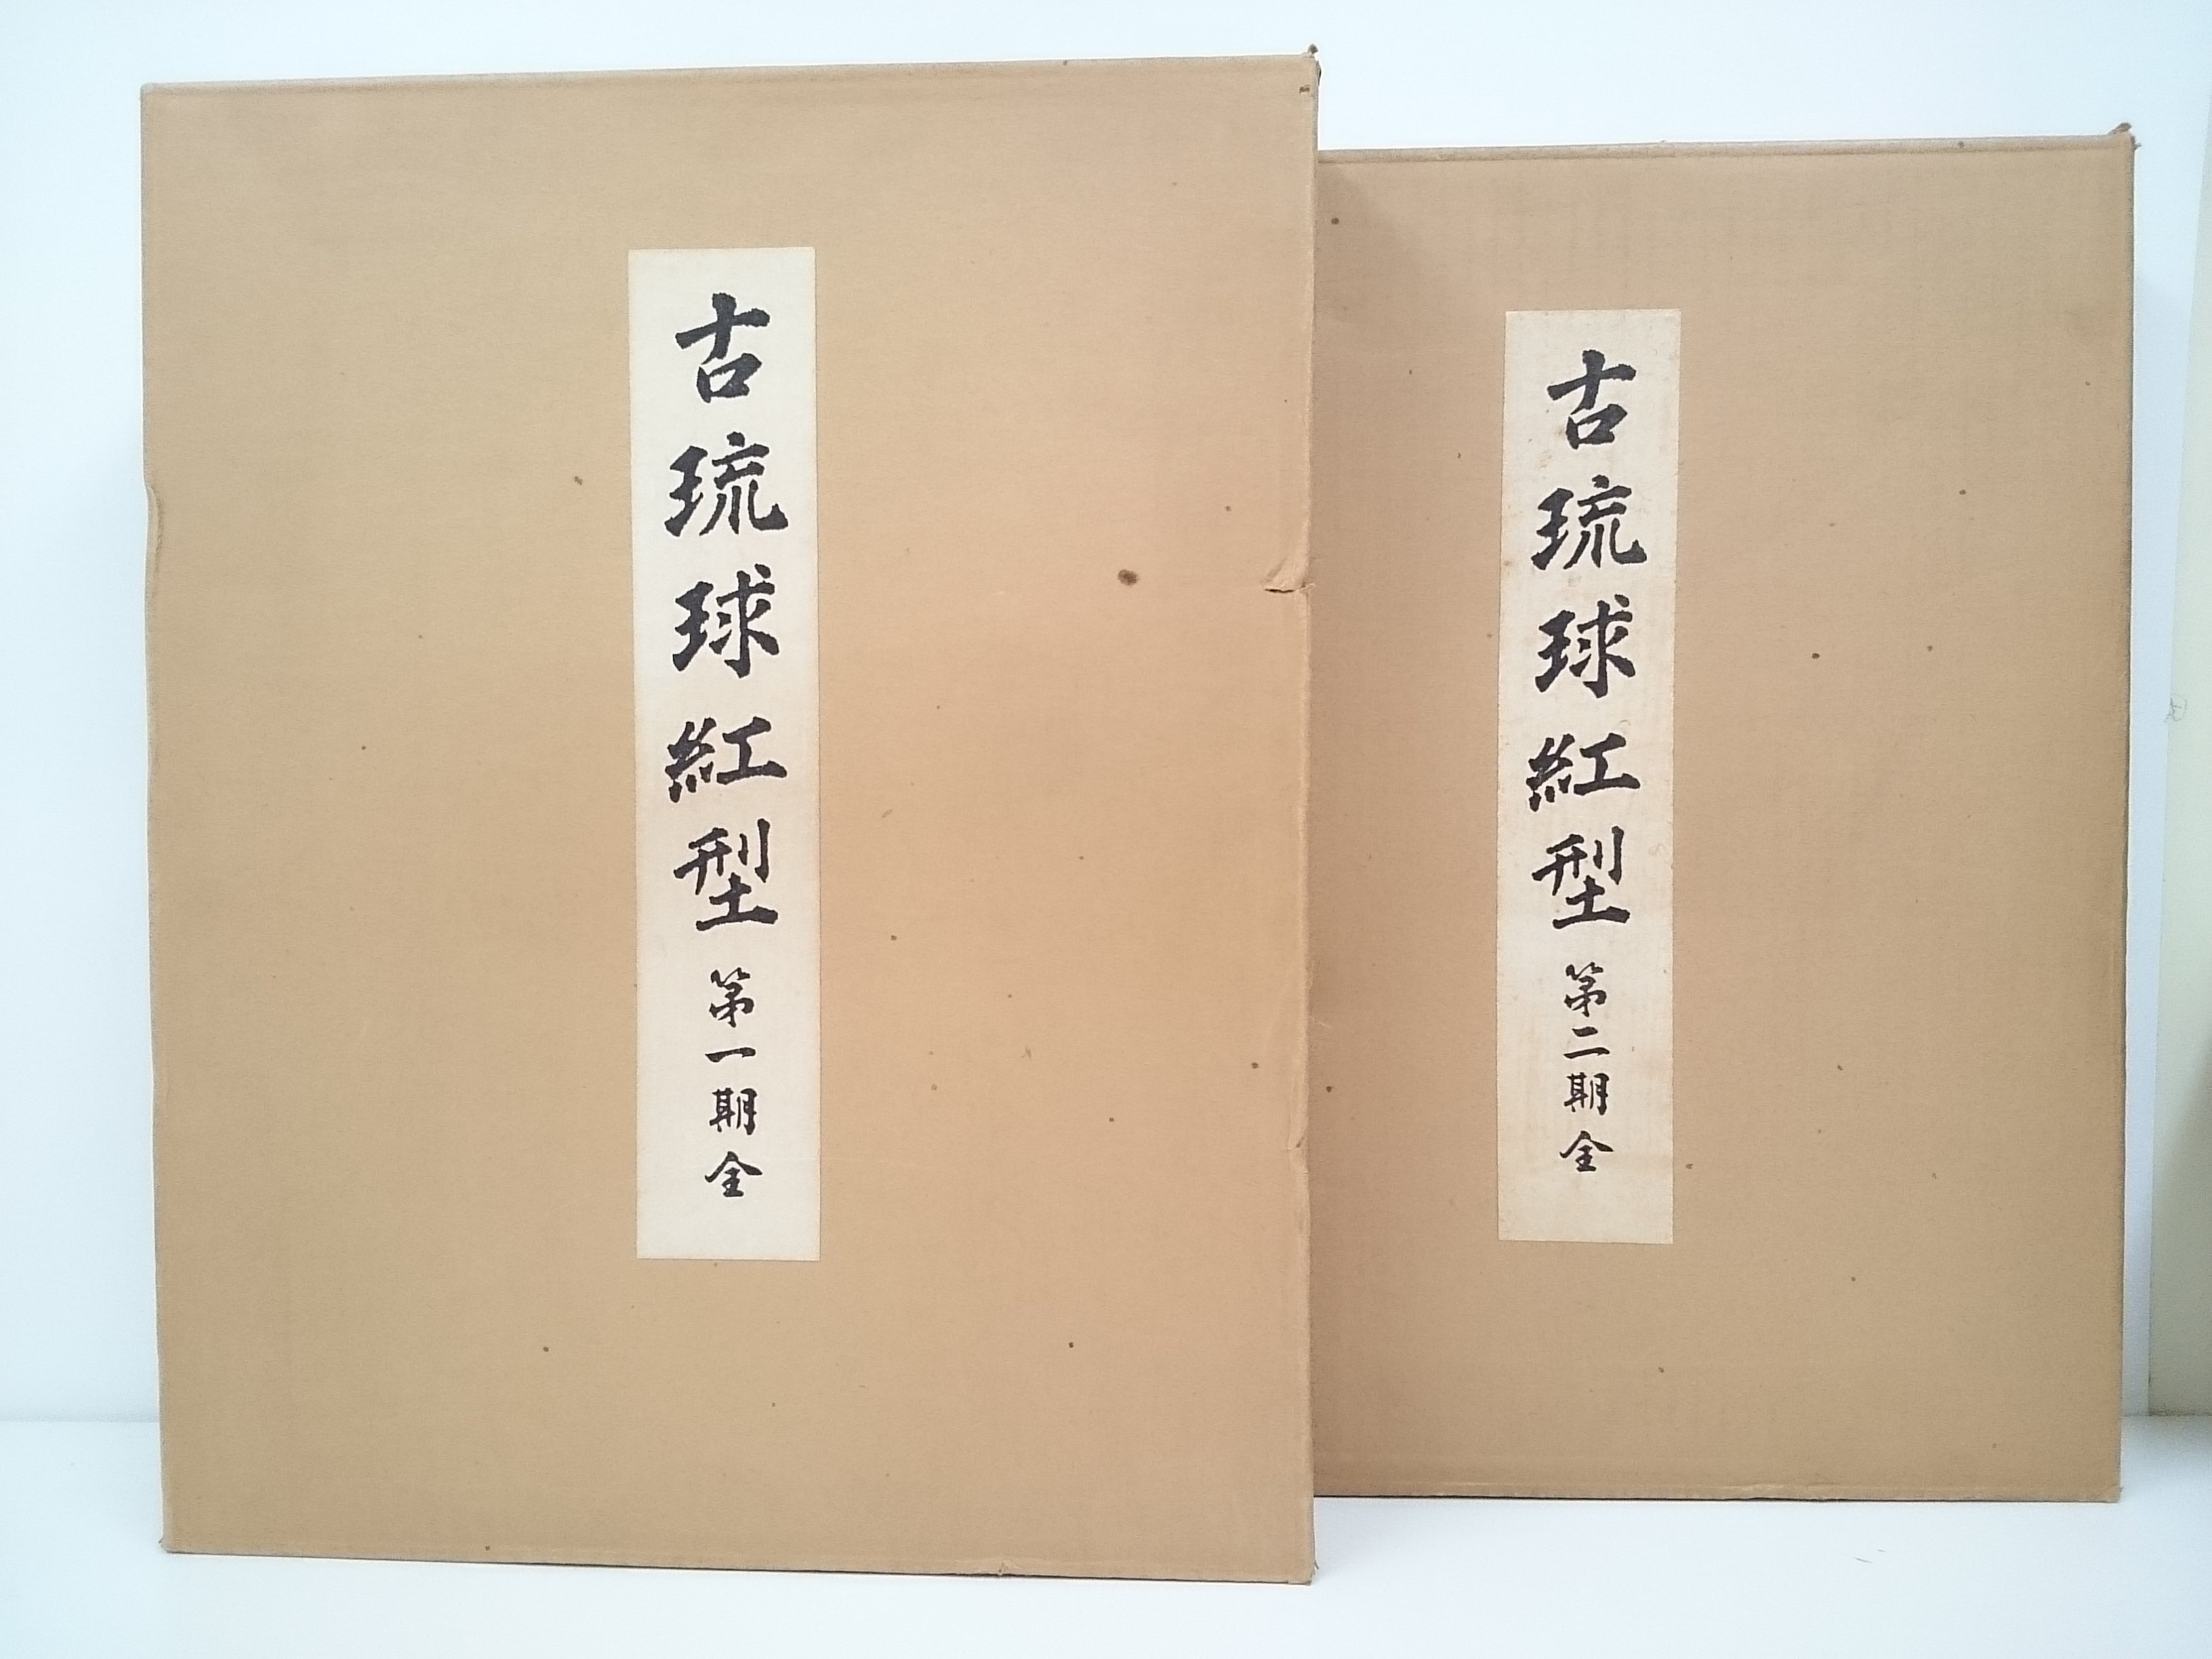 古琉球紅型 第一期 全
古琉球紅型 第二期 全